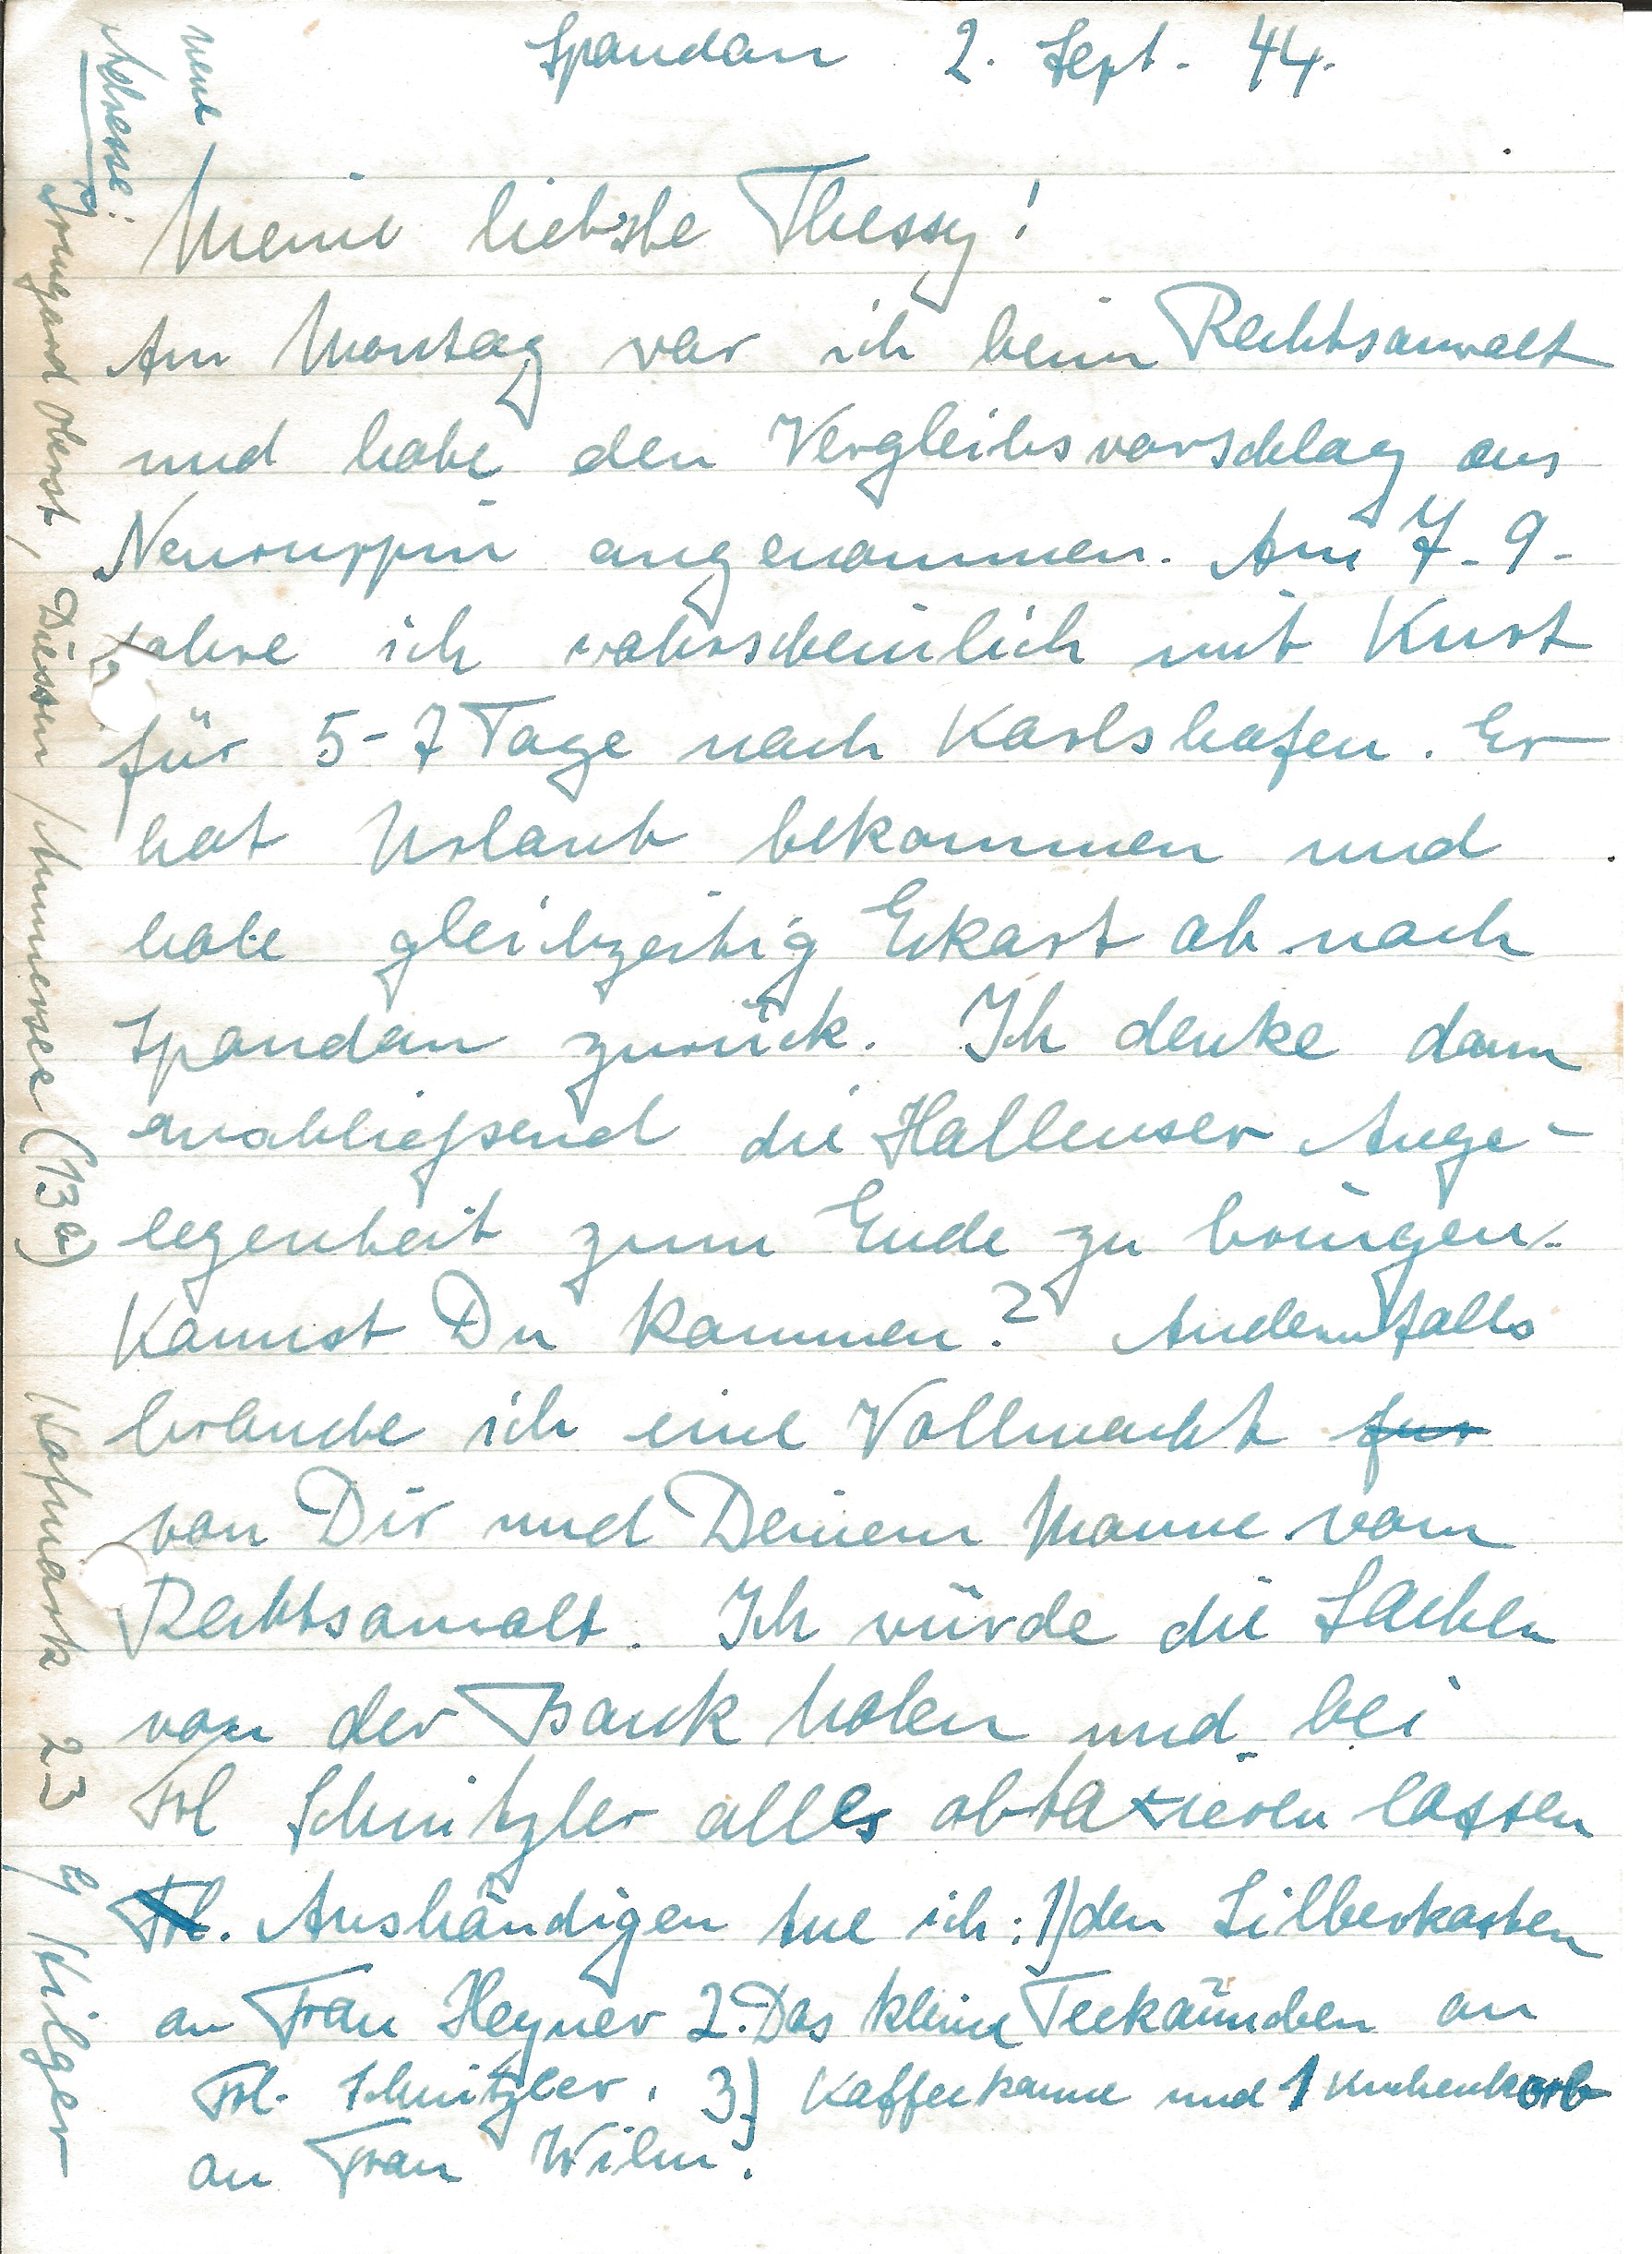 Spandau 2. Sept. 44.
Meine liebste Thessy!
Am Montag war ich beim Rechtsanwalt
und habe den Vergleichsvorschlag aus
Neuruppin angenommen. Am 7. 9.
fahre ich wahrscheinlich mit Kurt
für 5-7 Tage nach Karlshafen. Er
hat Urlaub bekommen und
hole gleichzeitig Eckart ab nach
Spandau zurück. Ich denke dann
anschließend die Hallenser Ange-
legenheit zum Ende zu bringen.
Kannst Du kommen? Andernfalls
brauche ich eine Vollmacht für
von Dir und Deinem Manne vom
Rechtsanwalt. Ich würde die Sachen
von der Bank holen und bei
Frl Schnitzler alles abtaxieren lassen
Frl. Aushändigen tue ich: 1) den Silberkasten
an Frau Heyner 2. Das kleine Teekännchen an
Frl. Schnitzler. 3) Kaffeekanne und 1 Kuchenkorb
an Frau Wilm.
neue
Adresse:
Irmgard Oberst, Diessen / Ammersee (13b)
Hofmark 23 b/ Hilger